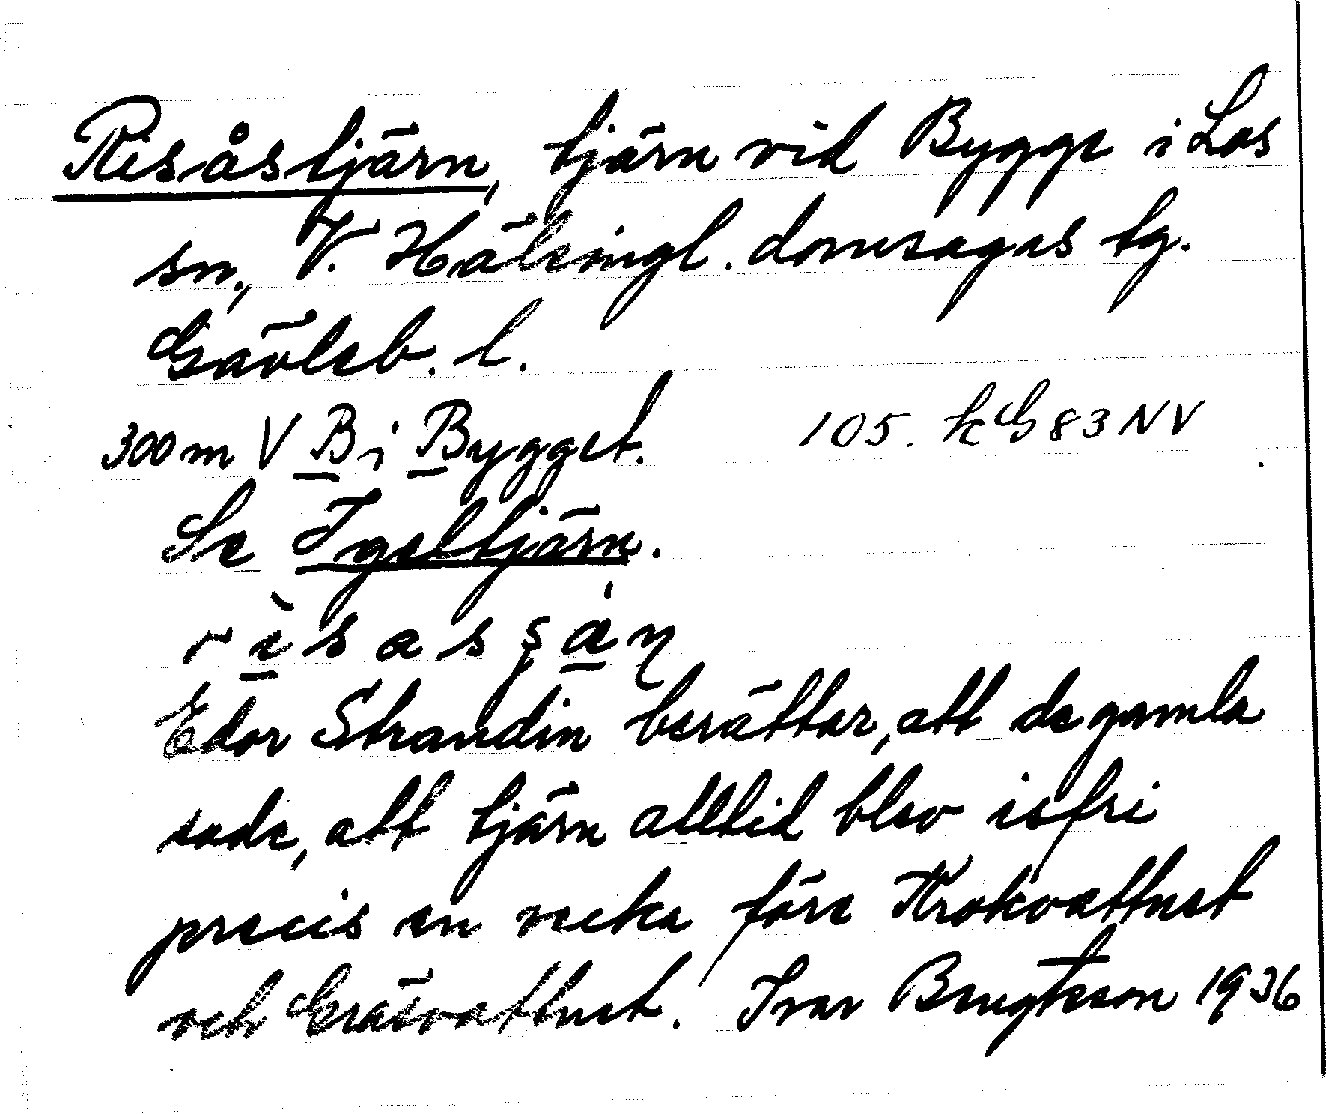 Risåstjärn, tjärn vid Bygge i Los
sn., V. Hälsingl. domsagas tg.
Gävleb. l.
300 m V B i Bygget. 105. kG 83 NV
Se Igeltjärn.
r ì s a s ş ä́ ɳ
Edor Strandin berättar, att de gamla
sade, att tjärn alltid blev isfri
precis en vecka före Krokvattnet
och Gräsvattnet. Ivar Bengtsson 1936